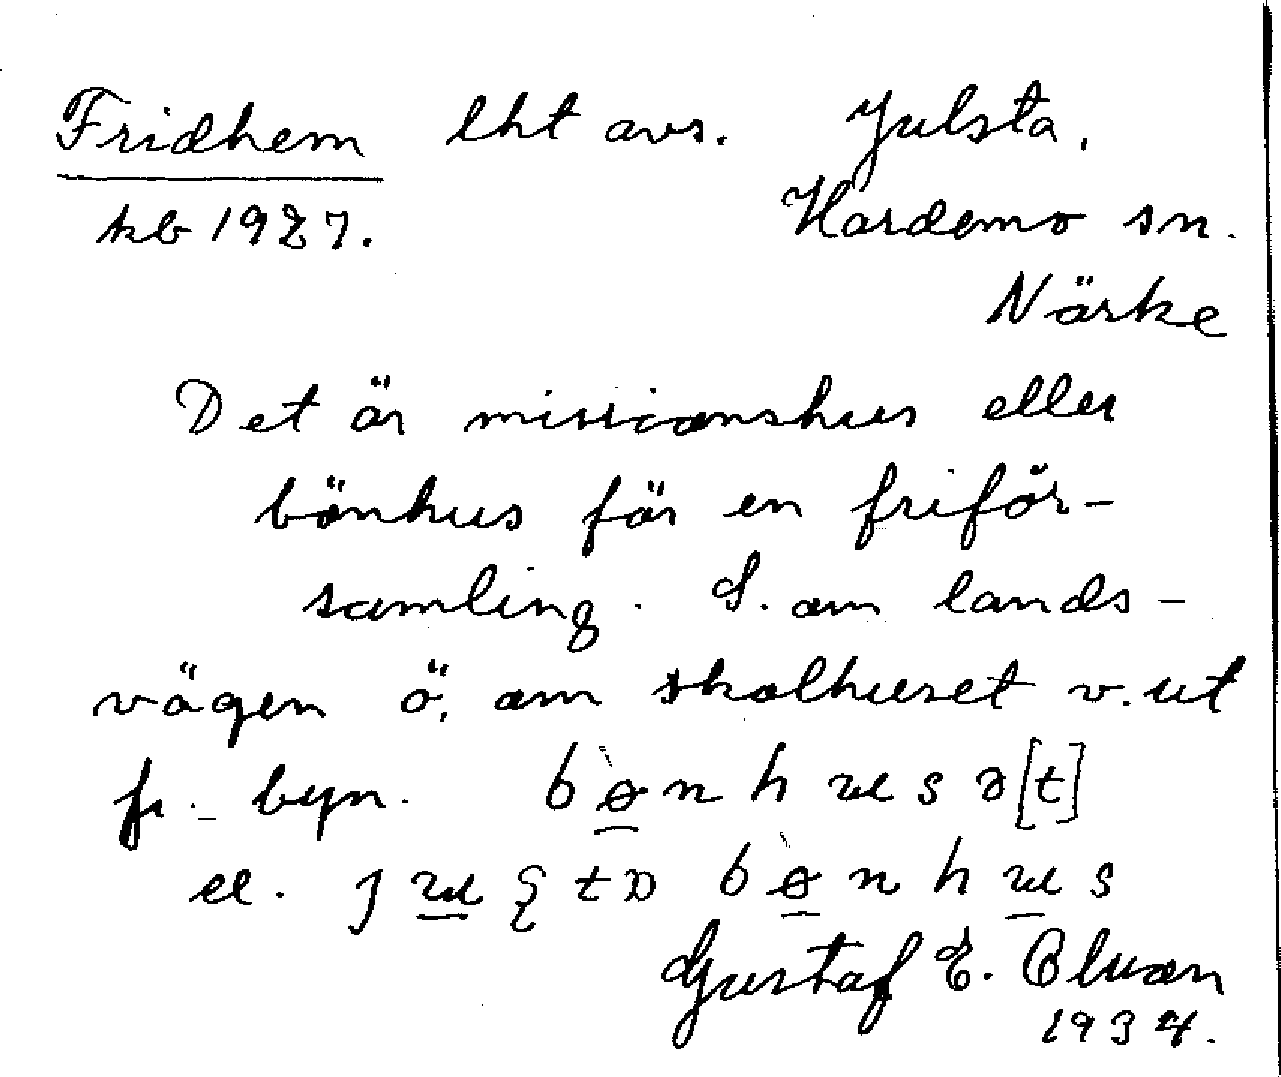 Fridhem lht avs. Julsta,
kb 1927. Hardemo sn.
Närke
Det är missionshus eller
bönhus för en friför-
samling. S. om lands-
vägen ö. om skolhuset v. ut
fr. byn. bònhusə[t]
el. bònhus
Gustaf E.
1934.